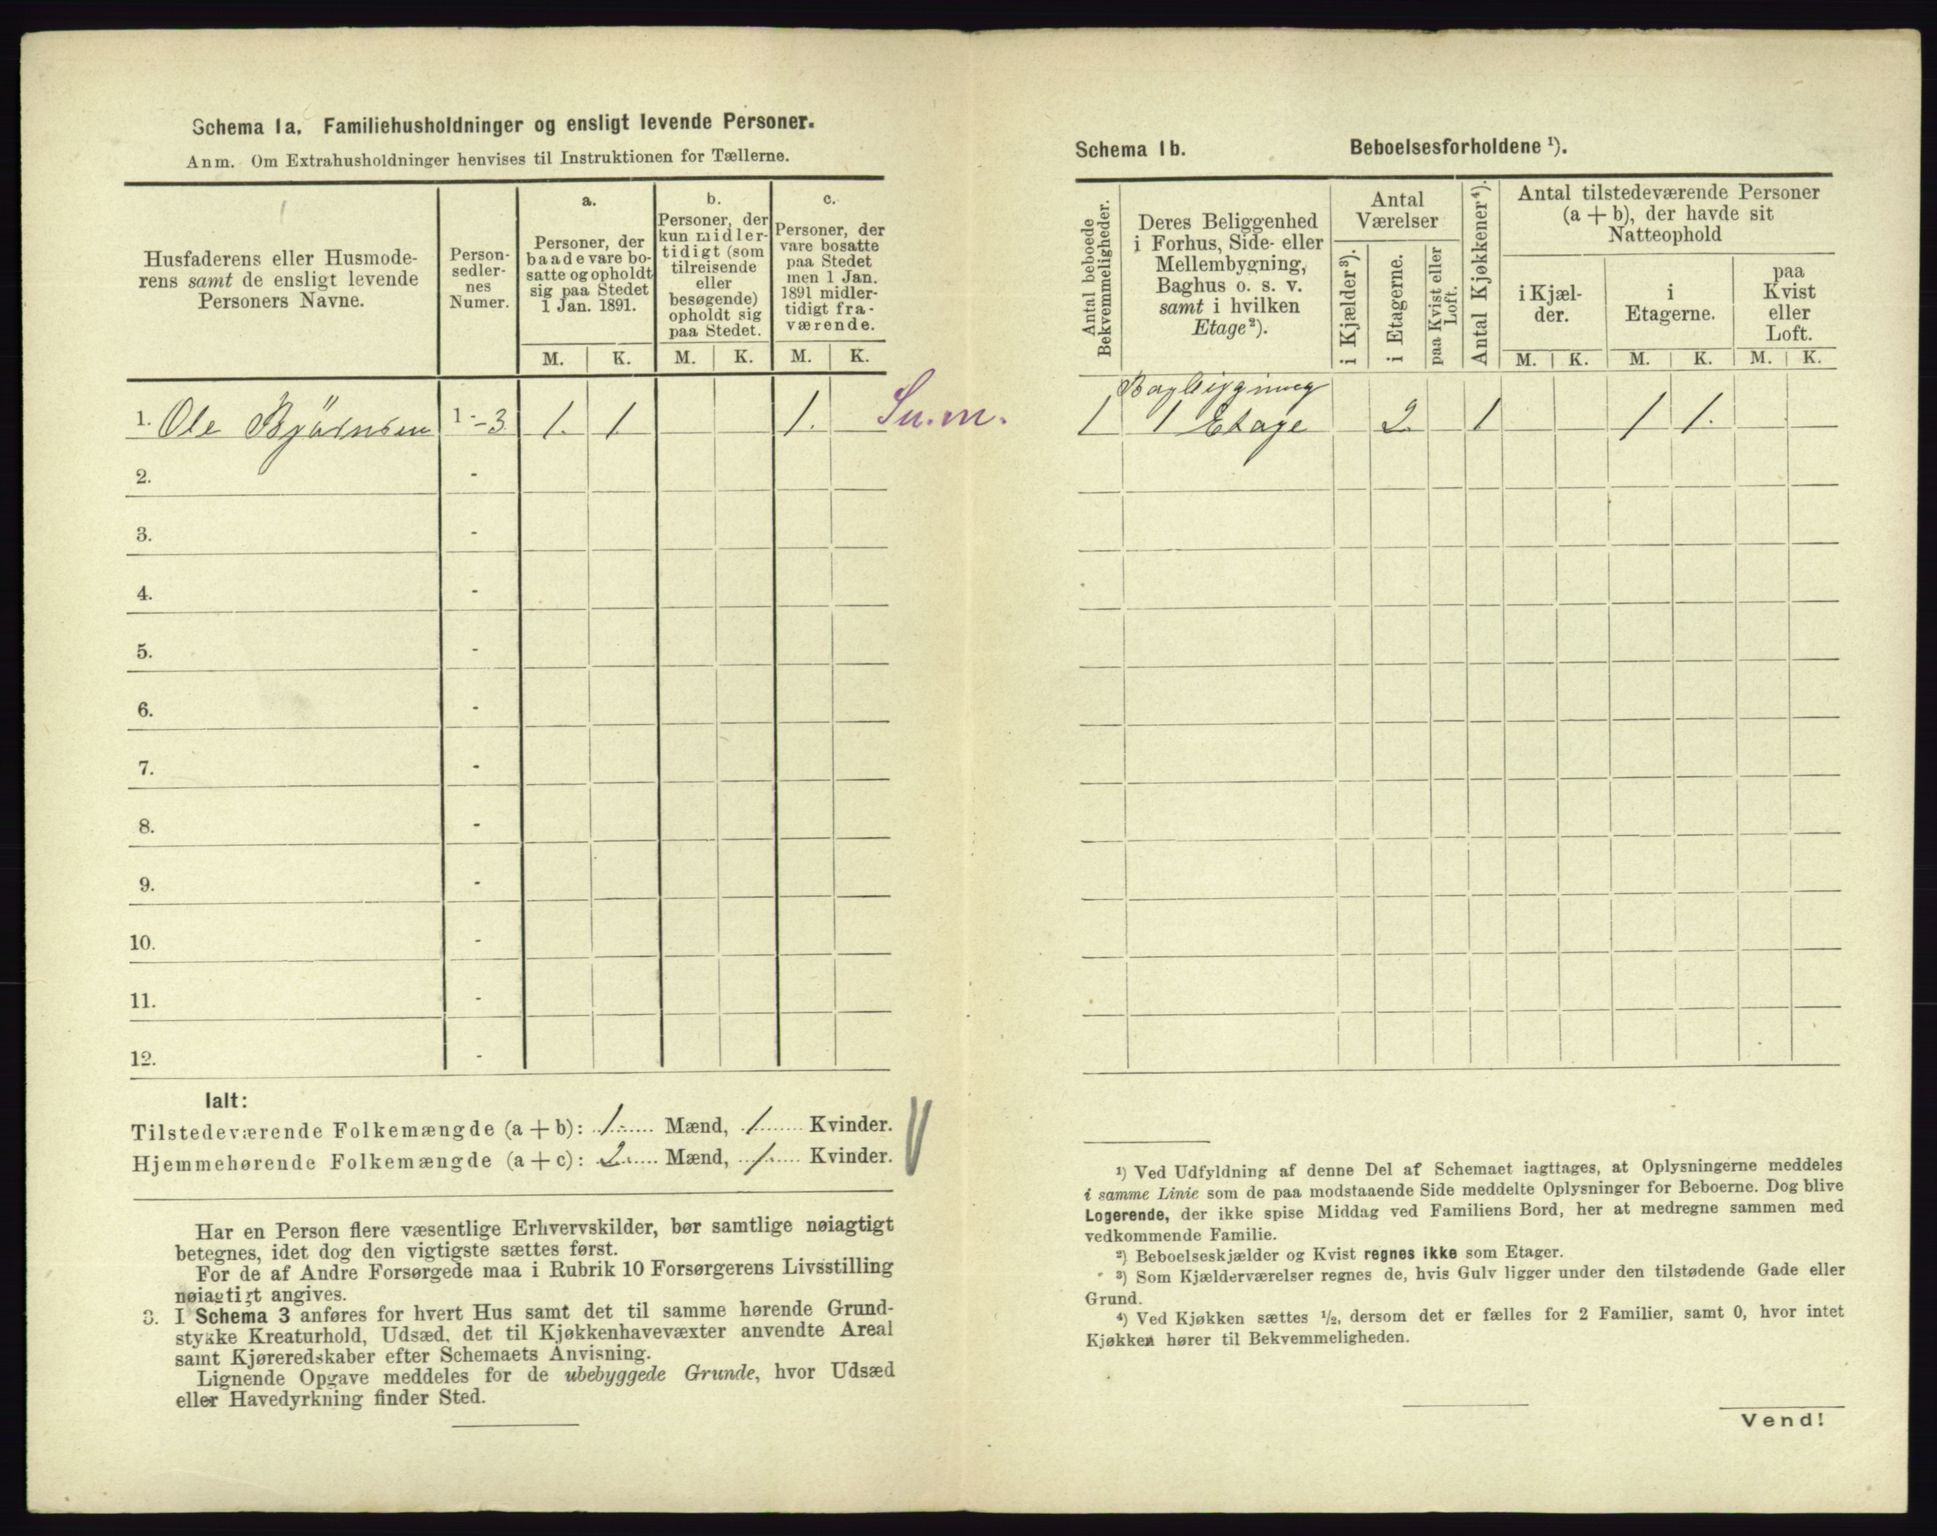 Schema 1a. Familiehusholdninger og ensligt levende Personer.
Anm. Om Extrahusholdninger henvises til Instruktionen for Tællerne.
Husfaderens eller Husmode-
rens samt de ensligt levende
Personers Navne.
Person-
sedler-
nes
Numer.
a.
Personer, der
baade vare bo-
satte og opholdt
sig paa Stedet
1 Jan. 1891.
b.
Personer, der
kun midler-
tidigt (som
tilreisende
eller
besøgende)
opholdt sig
paa Stedet.
c.
Personer, der
vare bosatte
paa Stedet
men 1 Jan.
1891 midler-
tidigt fra-
værende.
M. K. M. K. M. K.
1. Ole Bjørnsen 1-3 1. 1. 1. Su.m.
2. -
3. -
4. -
5. -
6. -
7. -
8. -
9. -
10. -
11. -
12. -
Ialt:
Tilstedeværende Folkemængde (a + b): 1 Mænd, 1 Kvinder.
Hjemmehørende Folkemængde (a + c): 2 Mænd, 1 Kvinder.
Har en Person flere væsentlige Erhvervskilder, bør samtlige nøiagtigt
betegnes, idet dog den vigtigste sættes først.
For de af Andre Forsørgede maa i Rubrik 10 Forsørgerens Livsstilling
nøiagtigt angives.
3. I Schema 3 anføres for hvert Hus samt det til samme hørende Grund-
stykke Kreaturhold, Udsæd, det til Kjøkkenhavevæxter anvendte Areal
samt Kjøreredskaber efter Schemaets Anvisning.
Lignende Opgave meddeles for de ubebyggede Grunde, hvor Udsæd
eller Havedyrkning finder Sted.
Schema 1b. Beboelsesforholdene ¹).
Antal beboede
Bekvemmeligheder.
Deres Beliggenhed
i Forhus, Side- eller
Mellembygning,
Baghus o. s. v.
samt i hvilken
Etage²).
Antal
Værelser
i Kjælder³).
i Etagerne.
paa Kvist eller
Loft.
Antal Kjøkkener⁴).
Antal tilstedeværende Personer
(a + b), der havde sit
Natteophold
i Kjæl-
der.
i
Etagerne.
paa
Kvist
eller
Loft.
M. K. M. K. M. K.
Bagbygning
1 1 Etage 2. 1 1 1.
¹) Ved Udfyldning af denne Del af Schemaet iagttages, at Oplysningerne meddeles
i samme Linie som de paa modstaaende Side meddelte Oplysninger for Beboerne. Dog blive
Logerende, der ikke spise Middag ved Familiens Bord, her at medregne sammen med
vedkommende Familie.
²) Beboelseskjælder og Kvist regnes ikke som Etager.
³) Som Kjælderværelser regnes de, hvis Gulv ligger under den tilstødende Gade eller
Grund.
⁴) Ved Kjøkken sættes ½, dersom det er fælles for 2 Familier, samt 0, hvor intet
Kjøkken hører til Bekvemmeligheden.
Vend!